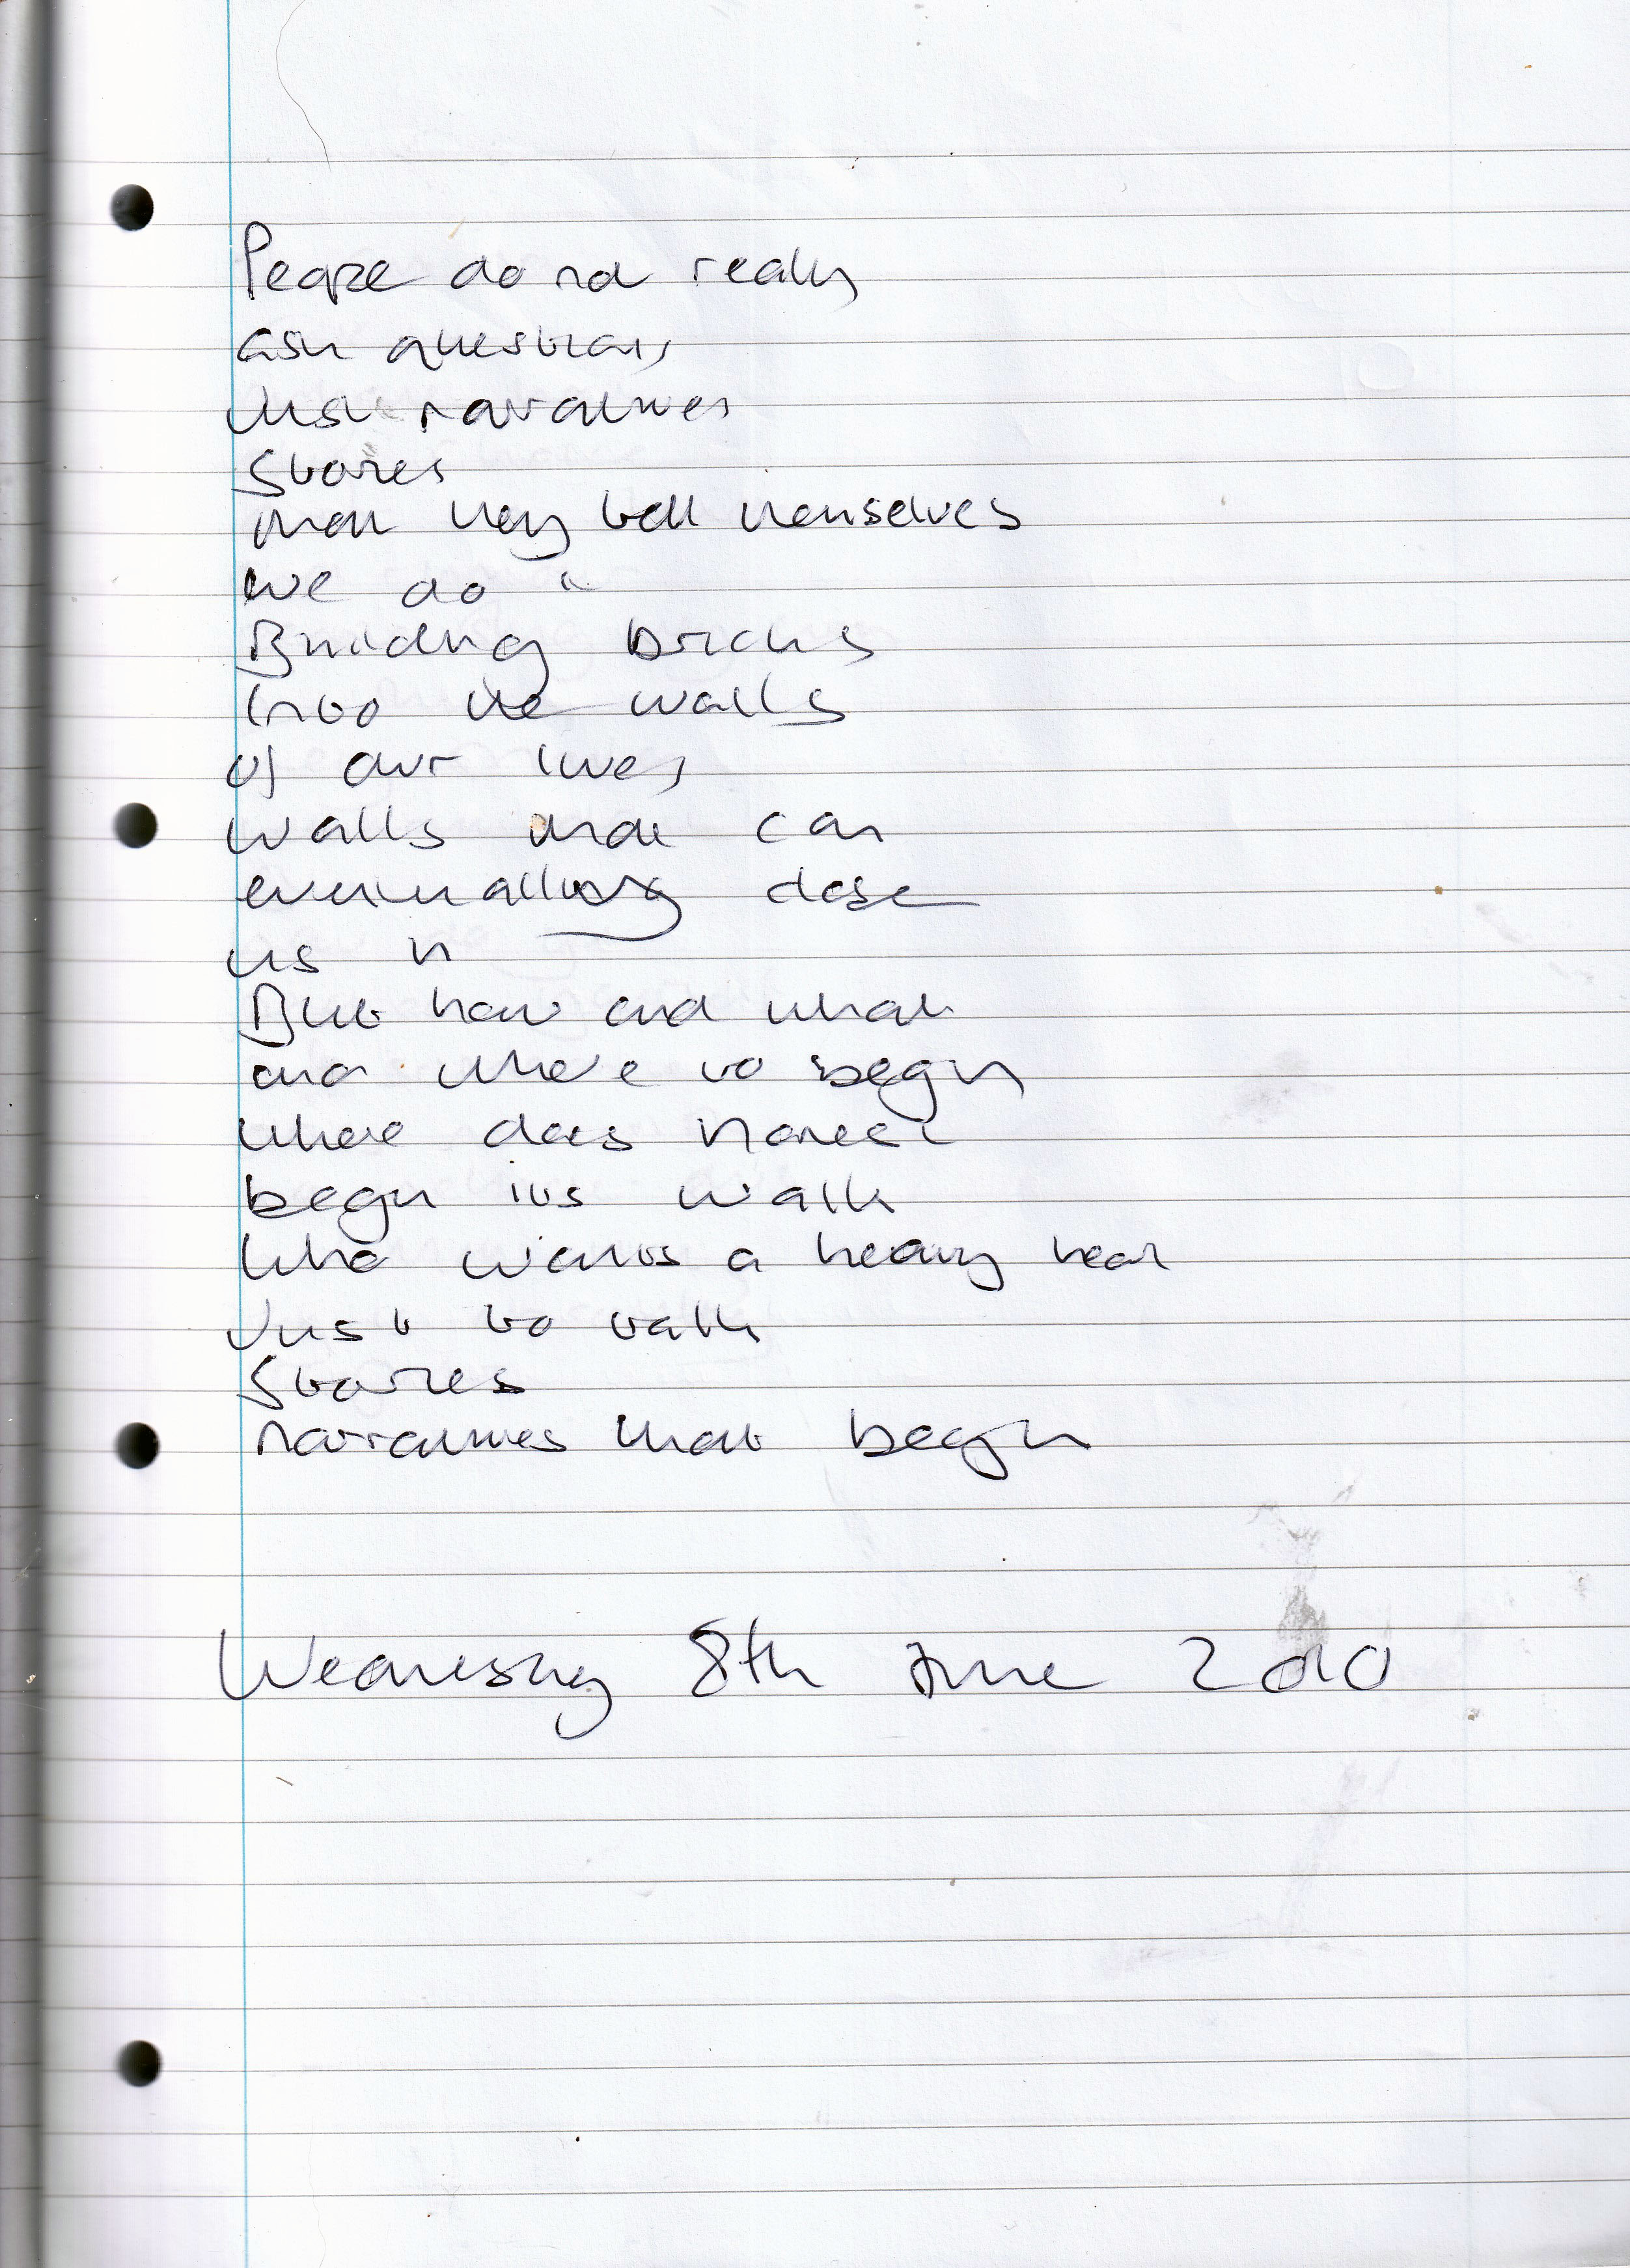 People do not really
ask questions
Just narratives
Stories
that they tell themselves
we do it
Building bricks
into the walls
of our lives
walls that can
eventually close
us in
But how and what
and where to begin
where does honest
begin its walk
who wants a heavy hear
Just to talk
Stories
narratives that begin
Wednesday 8th June 2010